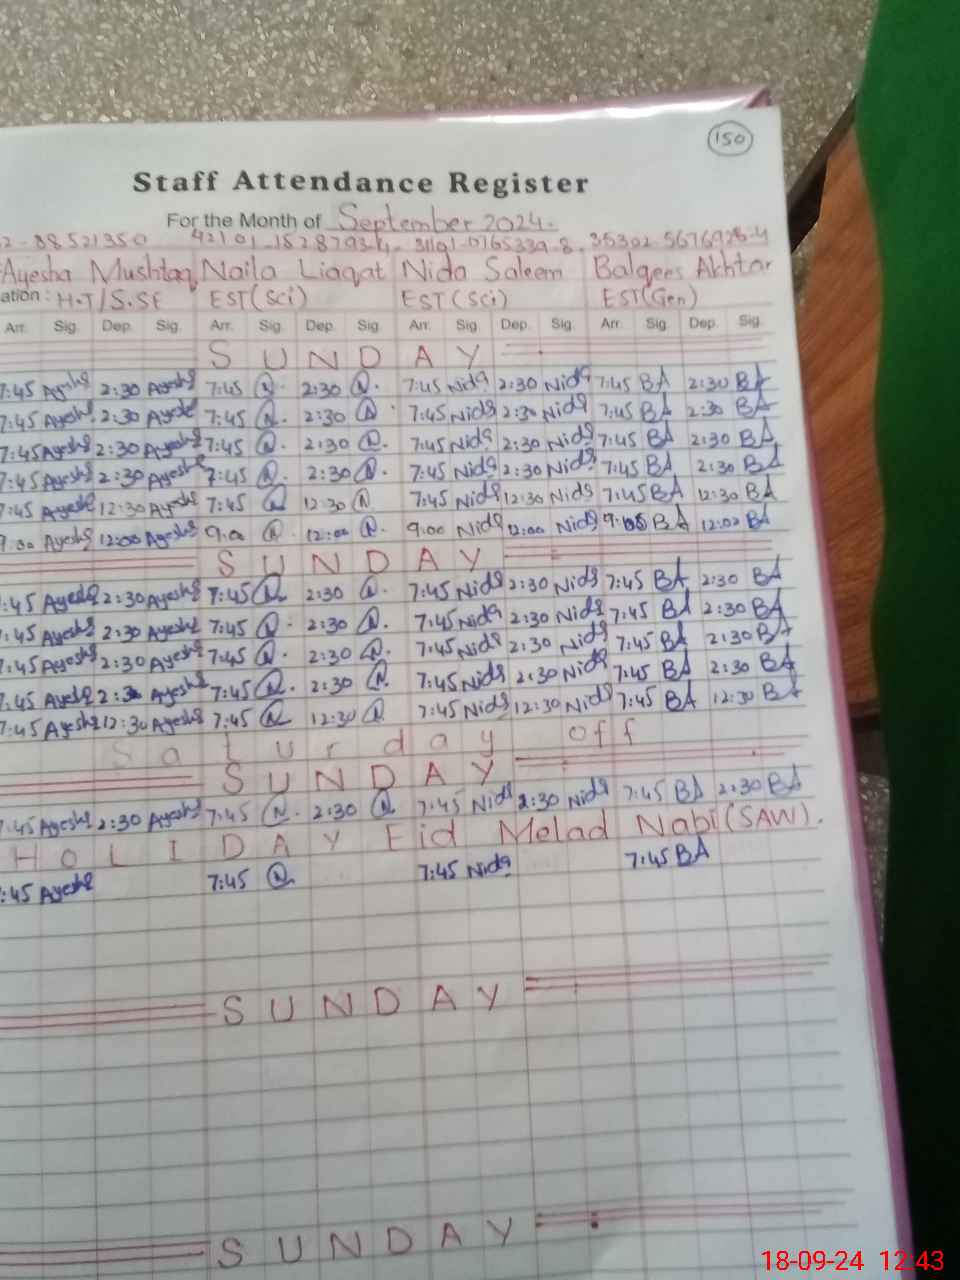 150
Staff Attendance Register
For the Month of September 2024.
2-88521350 42101-1528793-4. 31101-0765339-8. 35302-5676925-4
Ayesha Mushtaq Naila Liaqat Nida Saleem Balqees Akhtar
ation: H.T/S.SE EST(Sci) EST(Sci) EST(Gen)
Arr. Sig. Dep. Sig. Arr. Sig. Dep. Sig. Arr. Sig. Dep. Sig. Arr. Sig. Dep. Sig.
SUNDAY
7:45 Ayesha 2:30 Ayesha 7:45 N. 2:30 N. 7:45 Nida 2:30 Nida 7:45 BA 2:30 BA
7:45 Ayesha 2:30 Ayesha 7:45 N. 2:30 N 7:45 Nida 2:30 Nida 7:45 BA 2:30 BA
7:45 Ayesha 2:30 Ayesha 7:45 N. 2:30 N. 7:45 Nida 2:30 Nida 7:45 BA 2:30 BA
7:45 Ayesha 2:30 Ayesha 7:45 N. 2:30 N. 7:45 Nida 2:30 Nida 7:45 BA 2:30 BA
7:45 Ayesha 12:30 Ayesha 7:45 N 12:30 N 7:45 Nida 12:30 Nida 7:45 BA 12:30 BA
9:00 Ayesha 12:00 Ayesha 9:00 N. 12:00 N. 9:00 Nida 12:00 Nida 9:05 BA 12:02 BA
SUNDAY
:45 Ayesha 2:30 Ayesha 7:45 N 2:30 N. 7:45 Nida 2:30 Nida 7:45 BA 2:30 BA
:45 Ayesha 2:30 Ayesha 7:45 N. 2:30 N. 7:45 Nida 2:30 Nida 7:45 BA 2:30 BA
7:45 Ayesha 2:30 Ayesha 7:45 N. 2:30 N. 7:45 Nida 2:30 Nida 7:45 BA 2:30 BA
7:45 Ayesha 2:30 Ayesha 7:45 N. 2:30 N 7:45 Nida 2:30 Nida 7:45 BA 2:30 BA
7:45 Ayesha 12:30 Ayesha 7:45 N 12:30 N 7:45 Nida 12:30 Nida 7:45 BA 12:30 BA
Saturday off
SUNDAY
7:45 Ayesha 2:30 Ayesha 7:45 N. 2:30 N 7:45 Nida 2:30 Nida 7:45 BA 2:30 BA
HOLIDAY Eid Melad Nabi(SAW).
:45 Ayesha 7:45 N 7:45 Nida 7:45 BA
SUNDAY
SUNDAY
18-09-24 12:43